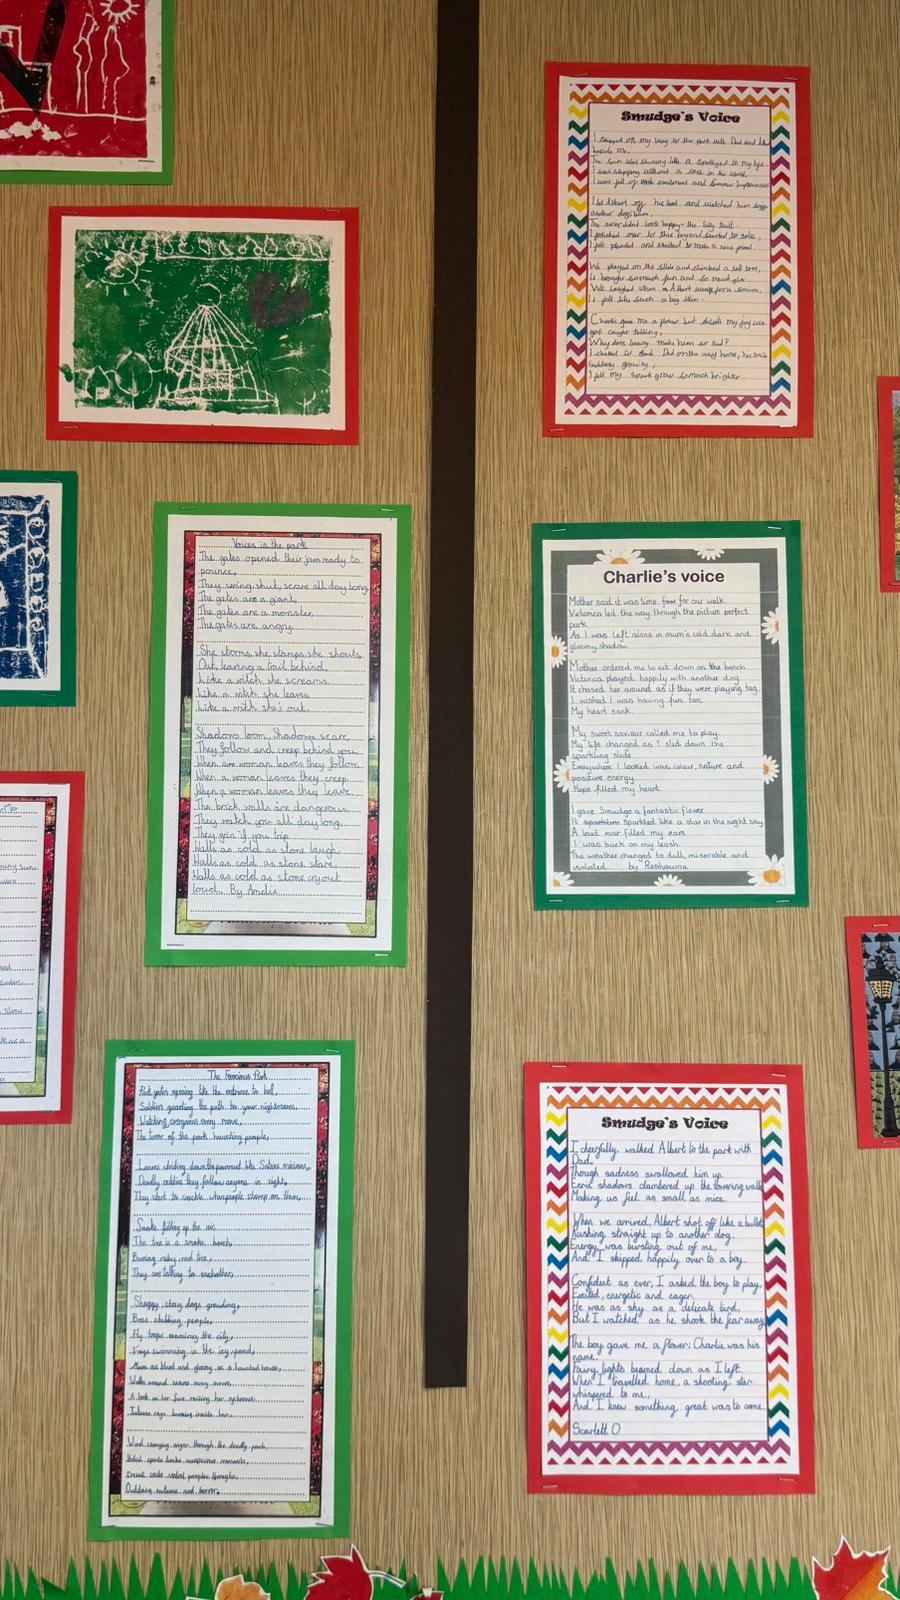 Smudge's Voice
I skipped on my way to the park with Dad and Albert
beside me,
The sun was shining like a spotlight in my eye.
I was skipping without a care in the world,
I was full of excitement and summer happiness
I let Albert off his lead and watched him
another dogs bum,
The owner didn't look happy- the silly twit.
I over to this boy and started to talk,
I felt pleased and excited to make a new friend.
We played on the slide and climbed a tall tree,
It brought so much fun and so much glee.
We laughed when Albert went for a swim,
It felt like such a big
Charlie gave me a flower but despite my joy we
got caught talking,
Why does being make him so sad?
I chatted to Dad on the way home, his smile
suddenly growing,
I felt my spark grow so much brighter.
Voices in the park
The gates opened their jaws ready to
pounce,
They swing shut, scare all day long
The gates are a giant.
The gates are a monster,
The gates are angry.
She storms she stamps she shouts.
Out leaving a trail behind.
Like a witch she screams.
Like a witch she leaves
Like a witch she's out.
Shadows loom, Shadows scare,
They follow and creep behind you.
When a woman leaves they follow
When a woman leaves they creep
When a woman leaves they leave.
The brick walls are dangerous.
They watch you all day long.
They grin if you trip
Walls as cold as stone laugh
Walls as cold as stone stare,
Walls as cold as stone cry out
loud. By Amelia
Charlie's voice
Mother said it was time for our walk.
Victoria led the way through the picture perfect
park.
As I was left alone in mum's cold, dark and
gloomy shadow.
Mother ordered me to sit down on the bench.
Victoria played happily with another dog.
It chased her around as if they were playing tag.
I wished I was having fun too,
My heart sank.
My sweet saviour called me to play.
My life changed as I slid down the
sparkling slide.
Everywhere I looked was colour, nature and
positive energy.
Hope filled my heart.
I gave Smudge a fantastic flower
It sparkled like a star in the night sky.
A loud roar filled my ears
I was back on my leash.
The weather changed to dull, miserable and
isolated. by Reshawna
The Ferocious Park
Park gates opening like the entrance to hell,
Soldiers guarding the path to your nightmares,
Watching everyones every move,
The terror of the park haunting people,
Leaves sliding down the pavement like Satans minions,
Deadly critters they follow anyone in sight,
They start to crackle when people stomp on them,
Smoke filling up the air,
The tree is a smoke bomb,
Burning ruby red tree,
They are talking to eachother,
Shaggy, stray dogs growling,
Bees stabbing people,
Fly traps the city,
Frogs swimming in the icy pond,
Mum as bland and gloomy as a haunted house,
Walls every move,
A look on her face her
Intense rage burning inside her,
Wind carrying anger through the deadly park,
peoples thoughts,
and terror.
Smudge's Voice
I cheerfully walked Albert to the park with
Dad,
Though sadness swallowed him up.
Eerie shadows clambered up the towering walls
Making us feel as small as mice.
When we arrived, Albert shot off like a bullet
Rushing straight up to another dog.
Energy was bursting out of me,
And I skipped happily over to a boy.
Confident as ever, I asked the boy to play,
Excited, energetic and eager.
He was as shy as a delicate bird,
But I watched as he shook the fear away
The boy gave me a flower: Charlie was his
name.
Fairy lights beamed down as I left.
When I travelled home, a shooting star
whispered to me,
And I knew something great was to come.
Scarlett O